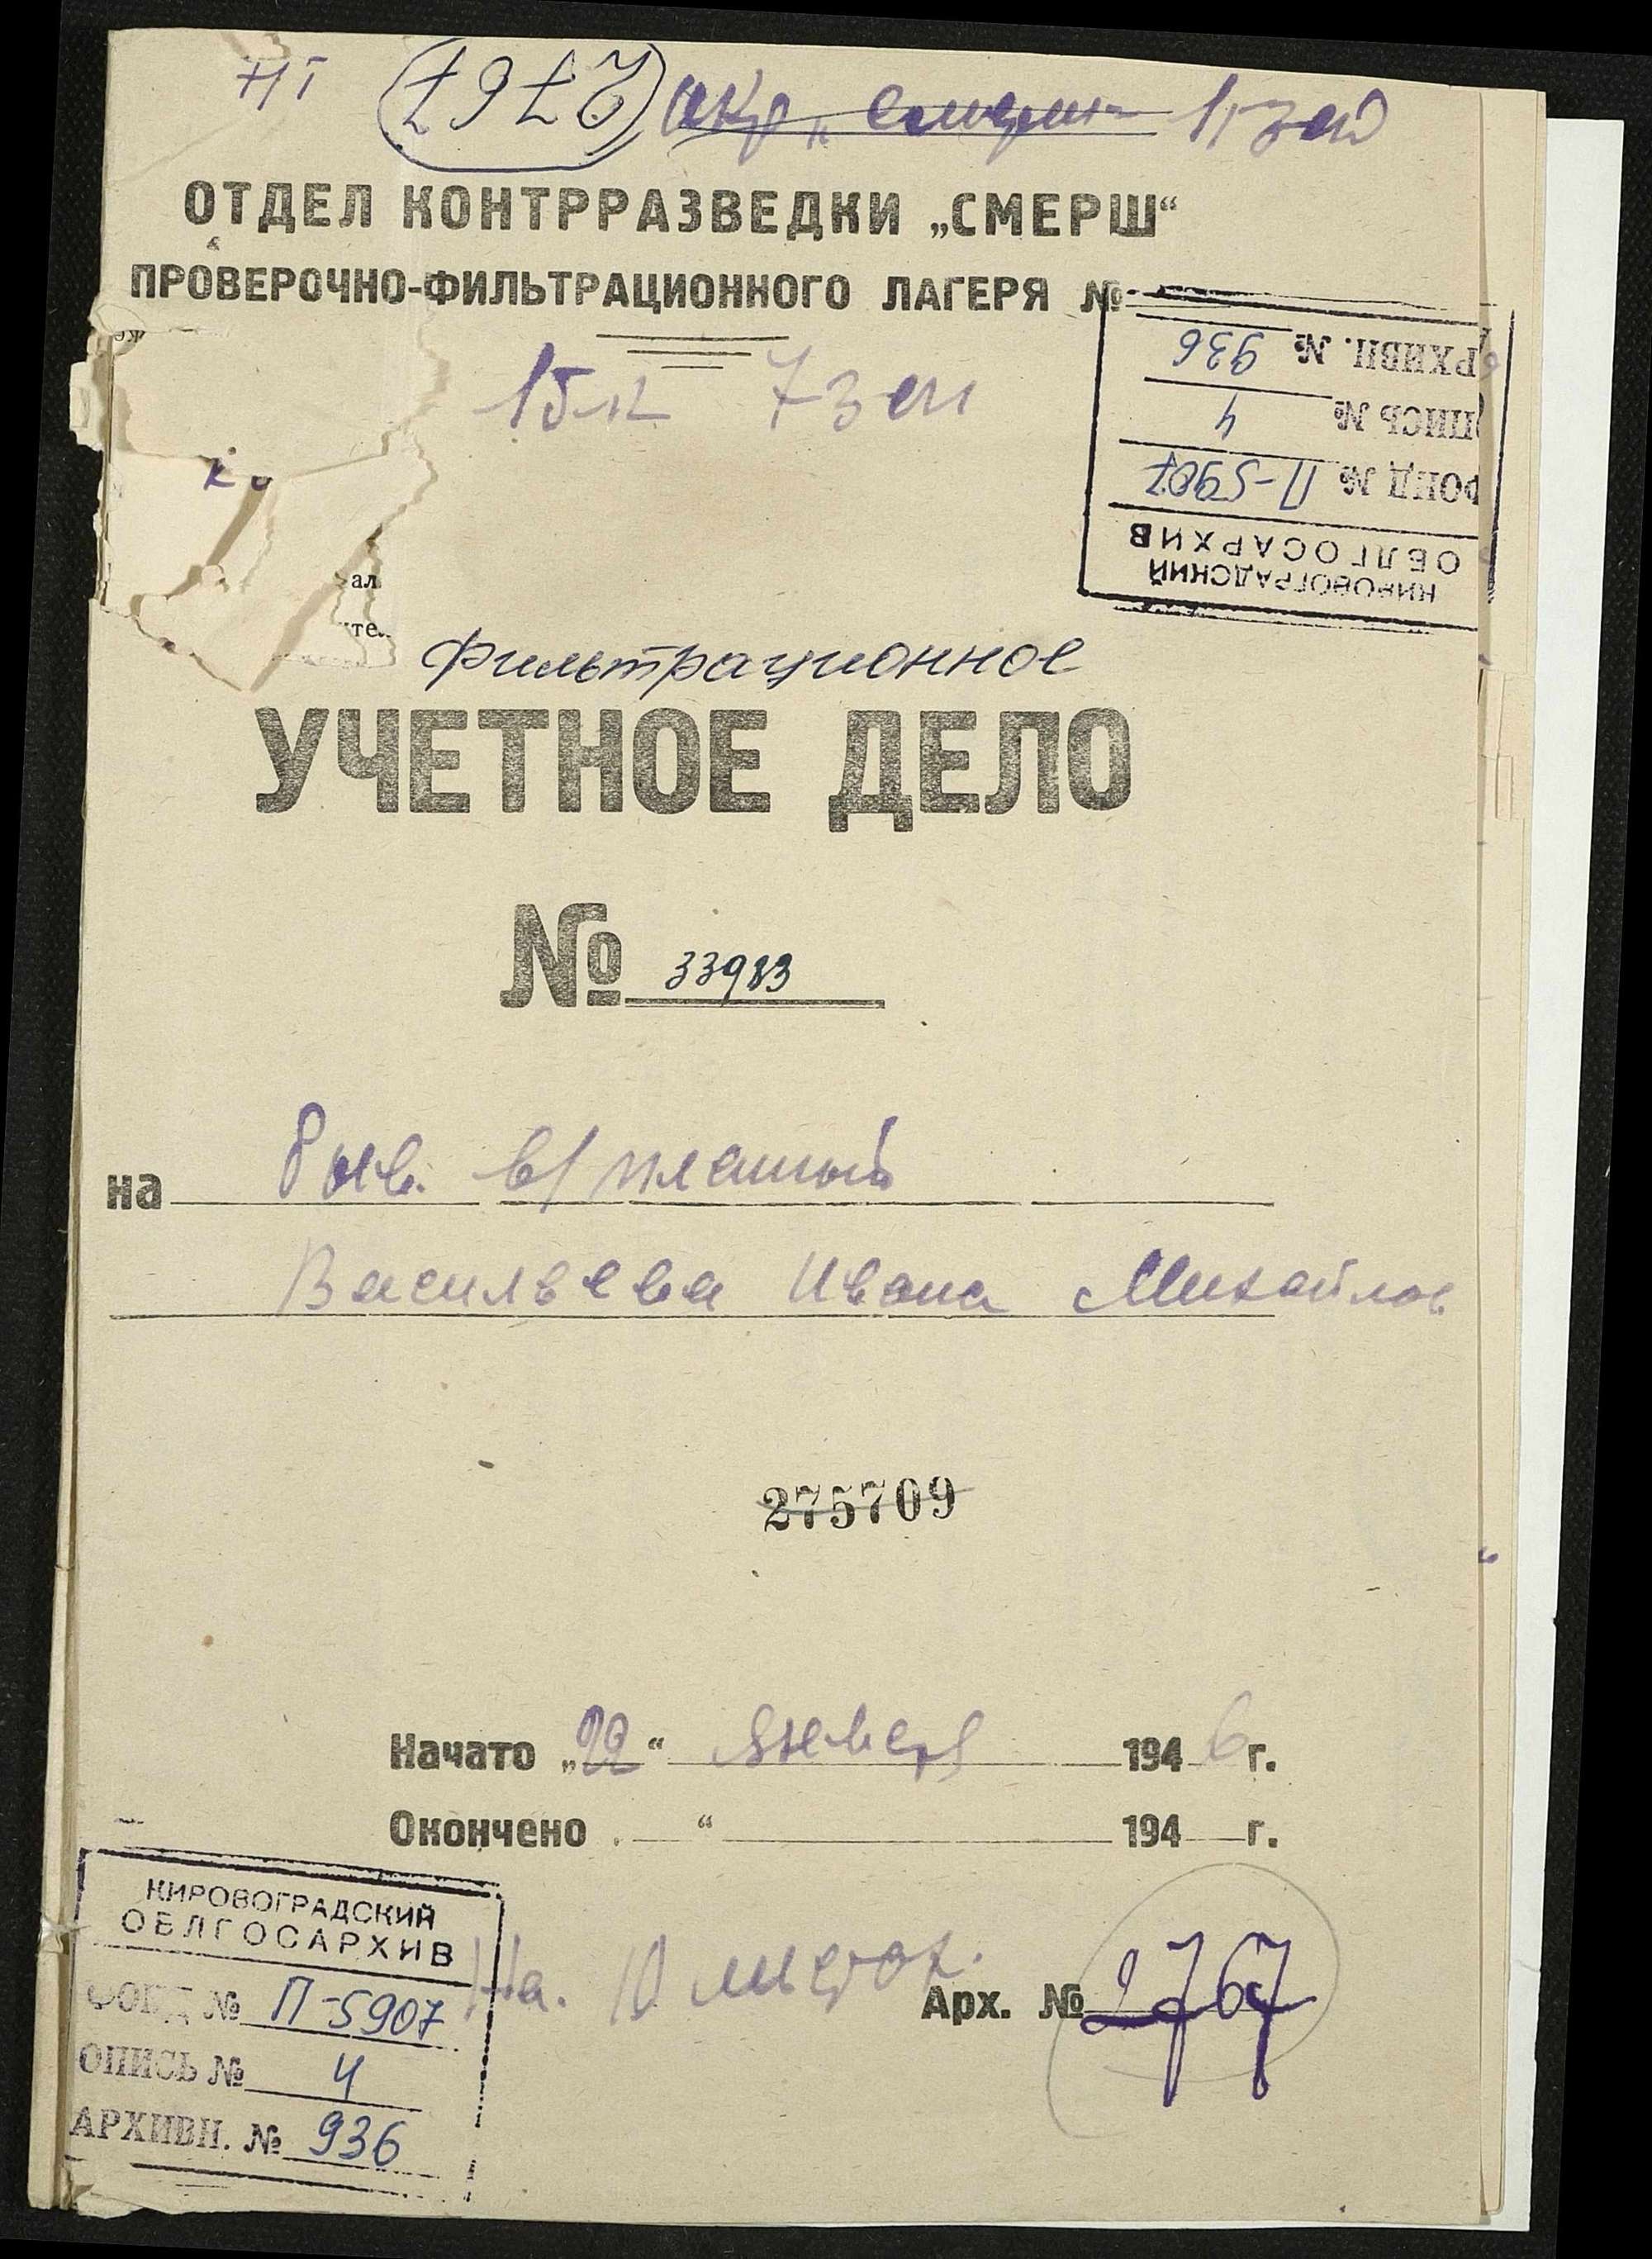 НГ 2767
ОТДЕЛ КОНТРРАЗВЕДКИ „СМЕРШ“
ПРОВЕРОЧНО-ФИЛЬТРАЦИОННОГО ЛАГЕРЯ №
КИРОВОГРАДСКИЙ
ОБЛГОСАРХИВ
ФОНД № П-5907
ОПИСЬ № 4
АРХИВН. № 936
Фильтрационное
УЧЕТНОЕ ДЕЛО
№ 33983
на Быв. в/пленный
Васильева Ивана Михайлов
275709
Начато „22“ января 1946 г.
Окончено „ “ 194 г.
КИРОВОГРАДСКИЙ
ОБЛГОСАРХИВ
ФОНД № П-5907
ОПИСЬ № 4
АРХИВН. № 936
На. 10 листах.
Арх. № 2767